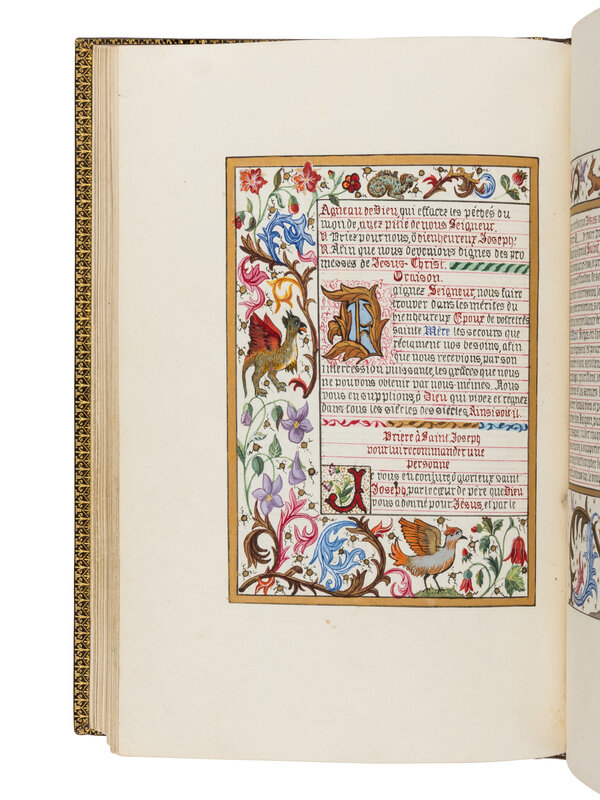 Agneau de Dieu, qui effacez les péchés du
monde, ayez pitié de nous Seigneur.
V. Priez pour nous, ô bienheureux Joseph!
R. Afin que nous devenions dignes des pro
messes de Jésus-Christ.
Oraison.
Daignez Seigneur, nous faire
trouver dans les mérites du
bienheureux Epoux de votre très
sainte Mère les secours que
réclament nos besoins, afin
que nous recevions, par son
intercession puissante, les grâces que nous
ne pouvons obtenir par nous-mêmes. Nous
vous en supplions, ô Dieu qui vivez et régnez
dans tous les siècles des siècles, Ainsi soit il.
Prière à Saint Joseph
pour lui recommander une
personne
Je vous en conjure ô glorieux saint
Joseph, par le cœur de père que Dieu
vous a donné pour Jésus, et par le